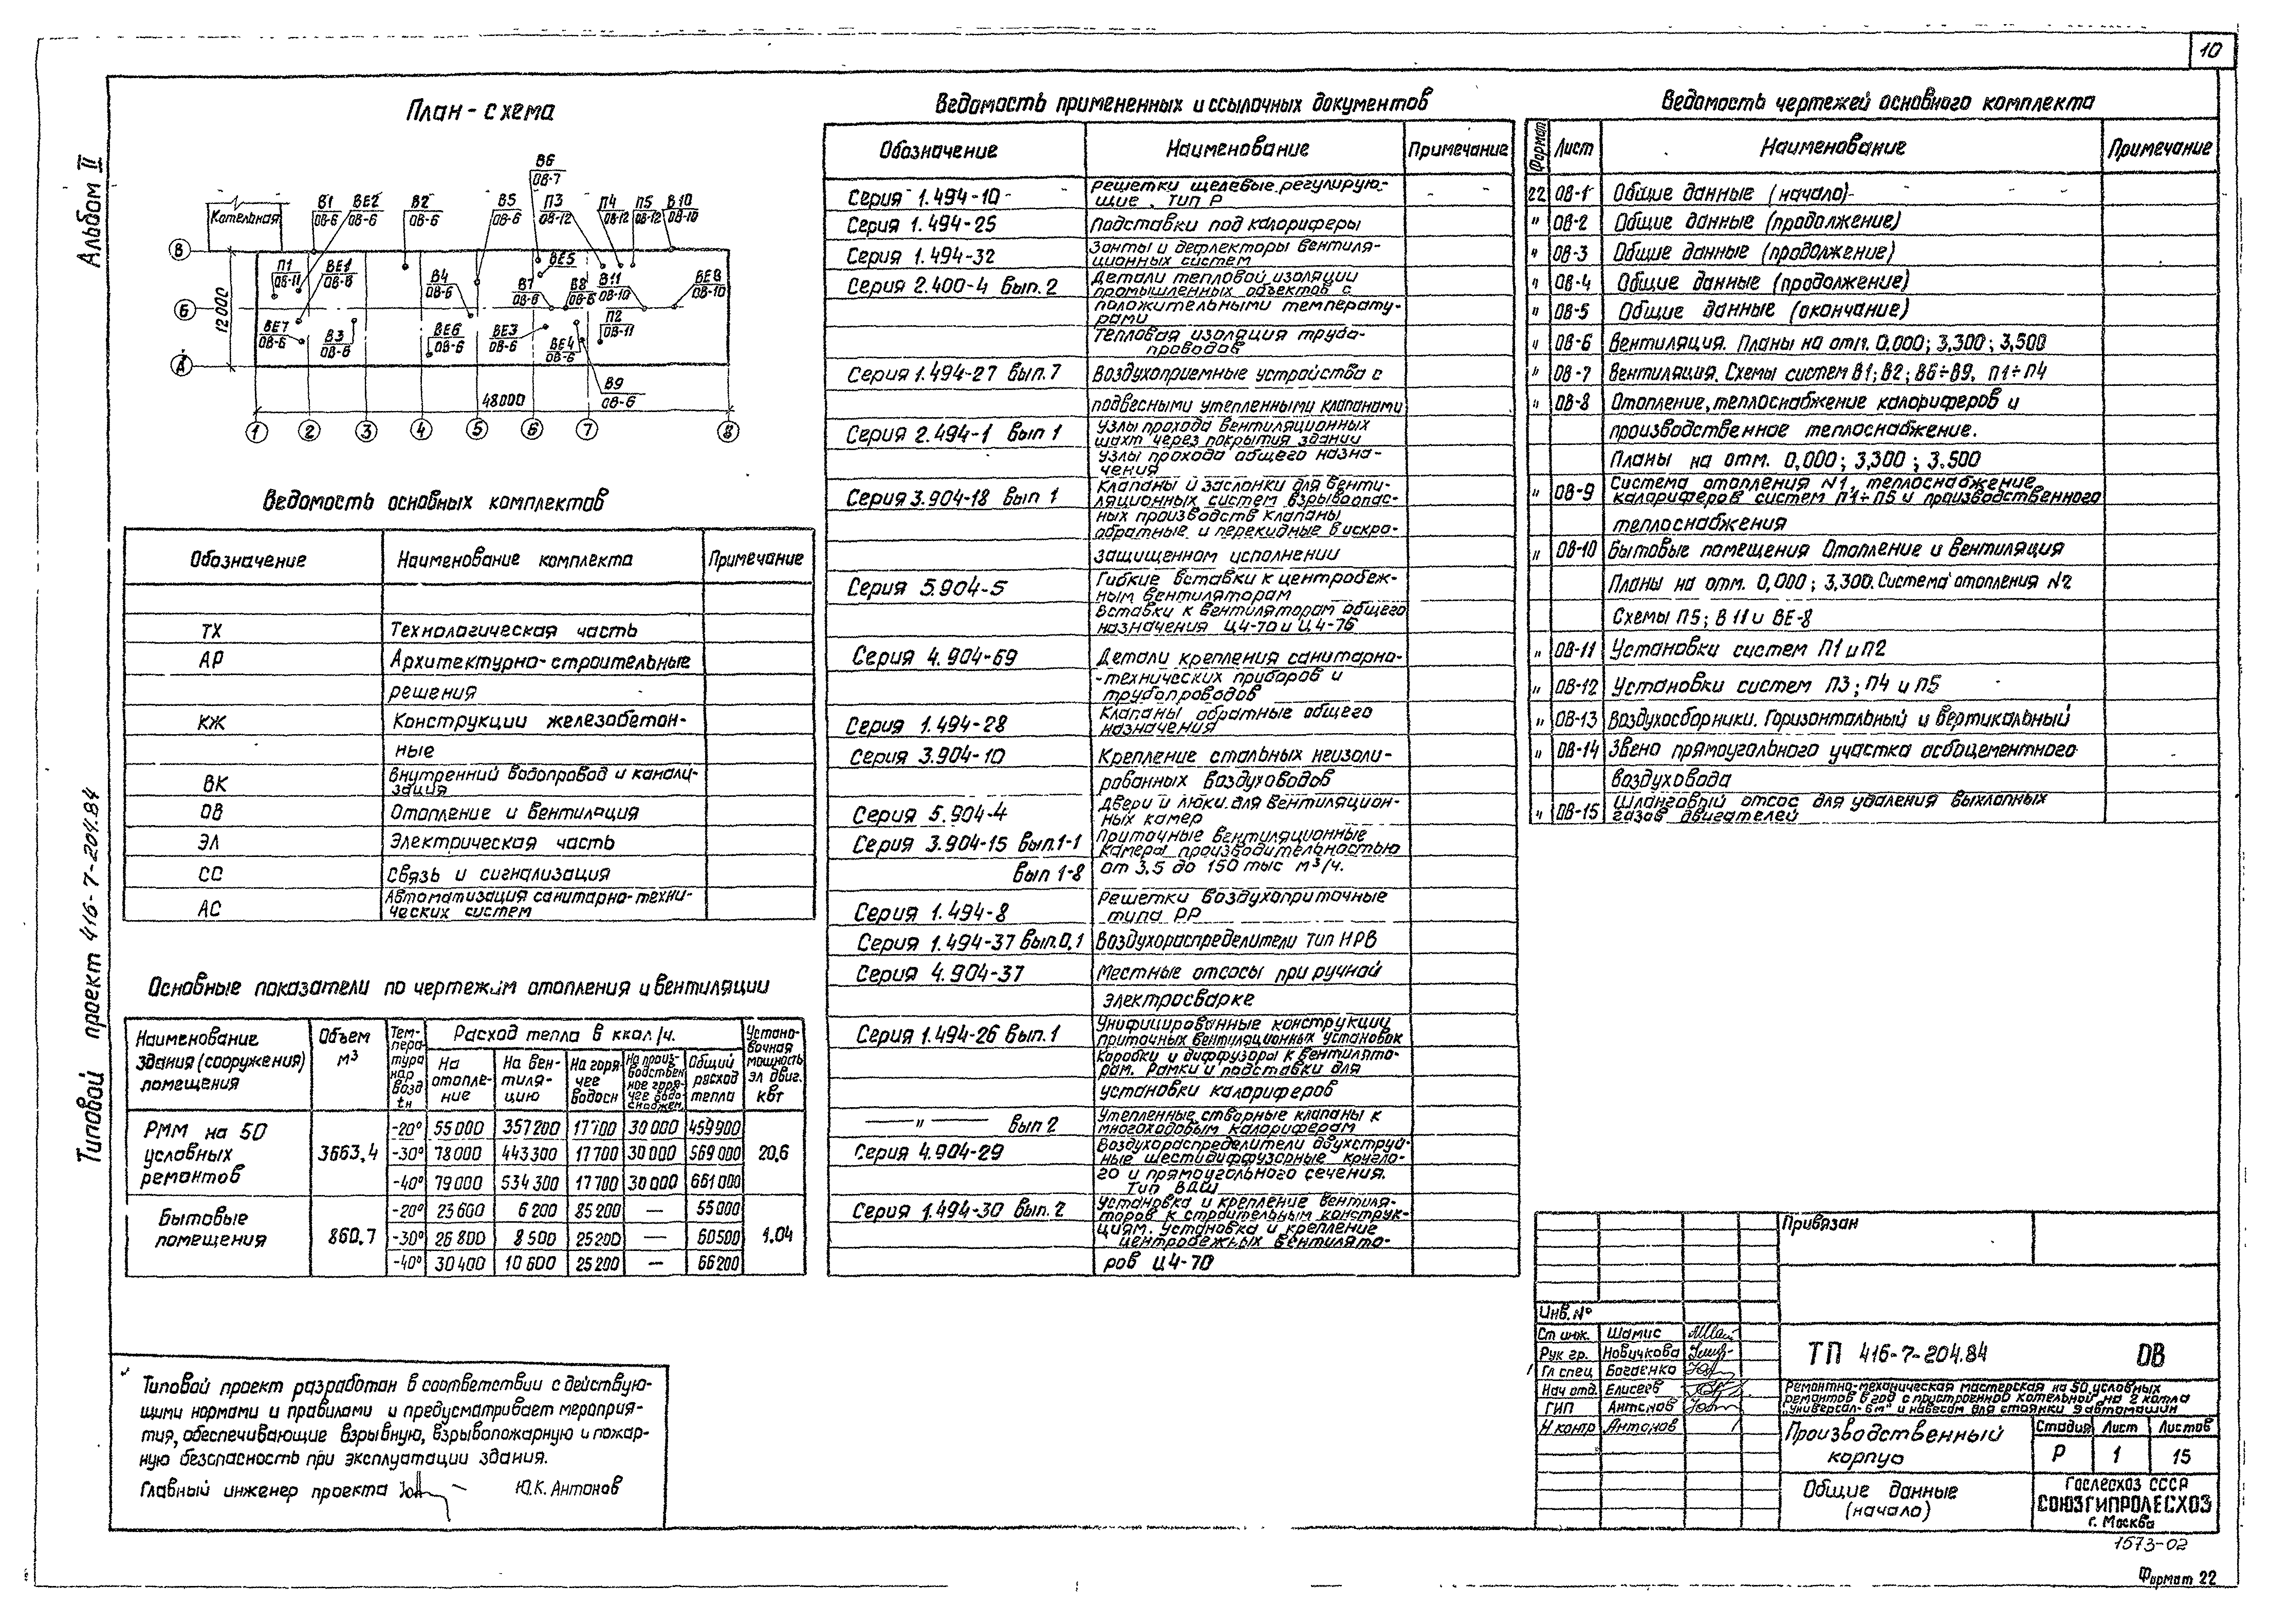 10
Альбом II
Типовой проект 416-7-204.84
План-схема
Котельная
В1
ОВ-6
ВЕ2
ОВ-6
В2
ОВ-6
В5
ОВ-6
В6
ОВ-7
П3
ОВ-12
П4
ОВ-12
П5
ОВ-12
В10
ОВ-10
П1
ОВ-11
ВЕ1
ОВ-6
В4
ОВ-6
ВЕ5
В7
ОВ-6
В8
ОВ-6
В11
ОВ-10
ВЕ8
ОВ-10
ВЕ7
ОВ-6
В3
ОВ-6
ВЕ6
ОВ-6
ВЕ3
ОВ-6
ВЕ4
ОВ-6
П2
ОВ-11
В9
ОВ-6
В
Б
А
12000
48000
1 2 3 4 5 6 7 8
Ведомость основных комплектов
Обозначение Наименование комплекта Примечание
ТХ Технологическая часть
АР Архитектурно-строительные
решения
КЖ Конструкции железобетон-
ные
ВК Внутренний водопровод и канали-
зация
ОВ Отопление и вентиляция
ЭЛ Электрическая часть
СС Связь и сигнализация
АС Автоматизация санитарно-техни-
ческих систем
Основные показатели по чертежам отопления и вентиляции
Наименование здания (сооружения) помещения
Объем м³
Температура нар возд tн
Расход тепла в ккал/ч.
На отопление
На вентиляцию
На горячее водосн
На производственное горячее водоснабжен.
Общий расход тепла
Установочная мощность эл двиг. квт
РММ на 50 условных ремонтов 3663,4 20,6
-20° 55000 357200 17700 30000 459900
-30° 78000 443300 17700 30000 569000
-40° 79000 534300 17700 30000 661000
Бытовые помещения 860,7 1,04
-20° 23600 6200 85200 — 55000
-30° 26800 8500 25200 — 60500
-40° 30400 10600 25200 — 66200
Типовой проект разработан в соответствии с действую-
щими нормами и правилами и предусматривает мероприя-
тия, обеспечивающие взрывную, взрывопожарную и пожар-
ную безопасность при эксплуатации здания.
Главный инженер проекта Ю.К. Антонов
Ведомость примененных и ссылочных документов
Обозначение Наименование Примечание
Серия 1.494-10 Решетки щелевые регулирую-
щие. Тип Р
Серия 1.494-25 Подставки под калориферы
Серия 1.494-32 Зонты и дефлекторы вентиля-
ционных систем
Серия 2.400-4 Вып. 2 Детали тепловой изоляции
промышленных объектов с
положительными температу-
рами
Тепловая изоляция трубо-
проводов
Серия 1.494-27 Вып. 7 Воздухоприемные устройства с
подвесными утепленными клапанами
Серия 2.494-1 Вып 1 Узлы прохода вентиляционных
шахт через покрытия здании
Узлы прохода общего назна-
чения
Серия 3.904-18 Вып 1 Клапаны и заслонки для венти-
ляционных систем взрывоопас-
ных производств Клапаны
обратные и перекидные в искро-
защищенном исполнении
Серия 5.904-5 Гибкие вставки к центробеж-
ным вентиляторам
Вставки к вентиляторам общего
назначения Ц4-70 и Ц4-76
Серия 4.904-69 Детали крепления санитарно-
-технических приборов и
трубопроводов
Серия 1.494-28 Клапаны обратные общего
назначения
Серия 3.904-10 Крепление стальных неизоли-
рованных воздуховодов
Серия 5.904-4 Двери и люки для вентиляцион-
ных камер
Серия 3.904-15 Вып. 1-1 Приточные вентиляционные
камеры производительностью
Вып 1-8 от 3.5 до 150 тыс м³/ч.
Серия 1.494-8 Решетки воздухоприточные
типа РР
Серия 1.494-37 Вып. 0,1 Воздухораспределители тип НРВ
Серия 4.904-37 Местные отсосы при ручной
электросварке
Серия 1.494-26 Вып. 1 Унифицированные конструкции
приточных вентиляционных установок
Коробки и диффузоры к вентилято-
рам. Рамки и подставки для
установки калориферов
— " — Вып 2 Утепленные створные клапаны к
многоходовым калориферам
Серия 4.904-29 Воздухораспределители двухструй-
ные шестидиффузорные кругло-
го и прямоугольного сечения.
Тип ВДШ
Серия 1.494-30 Вып. 2 Установка и крепление вентиля-
торов к строительным конструк-
циям. Установка и крепление
центробежных вентилято-
ров Ц4-70
Ведомость чертежей основного комплекта
Формат Лист Наименование Примечание
22 ОВ-1 Общие данные (начало)
" ОВ-2 Общие данные (продолжение)
" ОВ-3 Общие данные (продолжение)
" ОВ-4 Общие данные (продолжение)
" ОВ-5 Общие данные (окончание)
" ОВ-6 Вентиляция. Планы на отм. 0.000; 3,300; 3,500
" ОВ-7 Вентиляция. Схемы систем В1; В2; В6÷В9, П1÷П4
" ОВ-8 Отопление, теплоснабжение калориферов и
производственное теплоснабжение.
Планы на отм. 0,000; 3,300; 3.500
" ОВ-9 Система отопления N1, теплоснабжение
калориферов систем П1÷П5 и производственного
теплоснабжения
" ОВ-10 Бытовые помещения Отопление и вентиляция
Планы на отм. 0,000; 3,300. Система отопления N2
Схемы П5; В11 и ВЕ-8
" ОВ-11 Установки систем П1 и П2
" ОВ-12 Установки систем П3; П4 и П5
" ОВ-13 Воздухосборники. Горизонтальный и вертикальный
" ОВ-14 Звено прямоугольного участка асбоцементного
воздуховода
" ОВ-15 Шланговый отсос для удаления выхлопных
газов двигателей
Привязан
Инв. №
Ст инж. Шамис
Рук гр. Новичкова
Гл спец Богаенко
Нач отд. Елисеев
ГИП Антонов
Н контр Антонов
ТП 416-7-204.84 ОВ
Ремонтно-механическая мастерская на 50 условных
ремонтов в год с пристроенной котельной на 2 котла
„Универсал-6м" и навесом для стоянки 9 автомашин
Производственный
корпус
Стадия Лист Листов
Р 1 15
Общие данные
(начало)
Гослесхоз СССР
СОЮЗГИПРОЛЕСХОЗ
г. Москва
1573-02
Формат 22